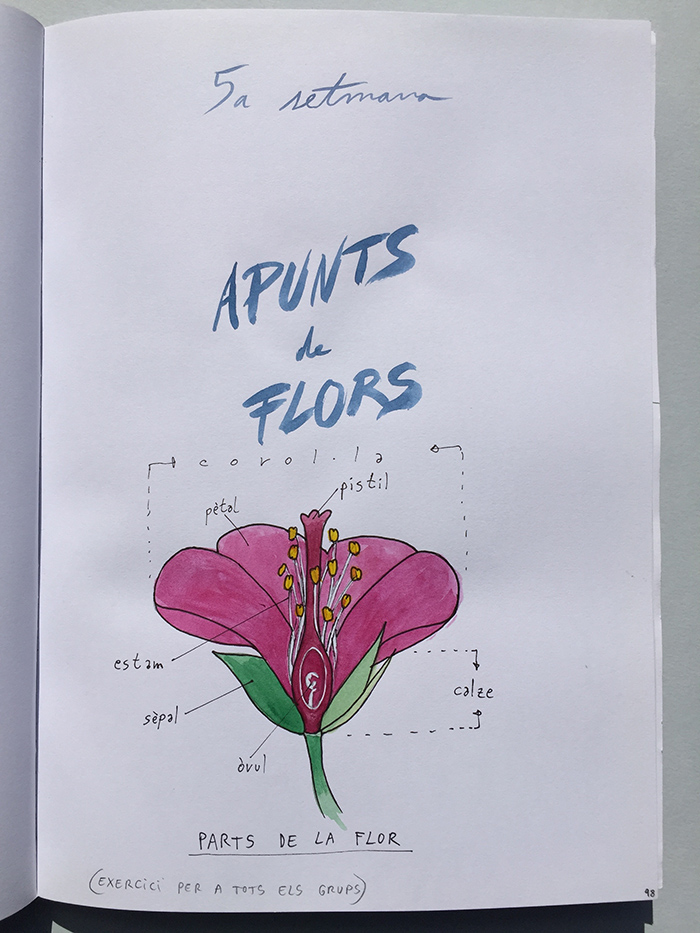 5a setmana
APUNTS
de
FLORS
corol·la
pistil
pètal
estam
calze
sèpal
òvul
PARTS DE LA FLOR
(EXERCICI PER A TOTS ELS GRUPS)
98